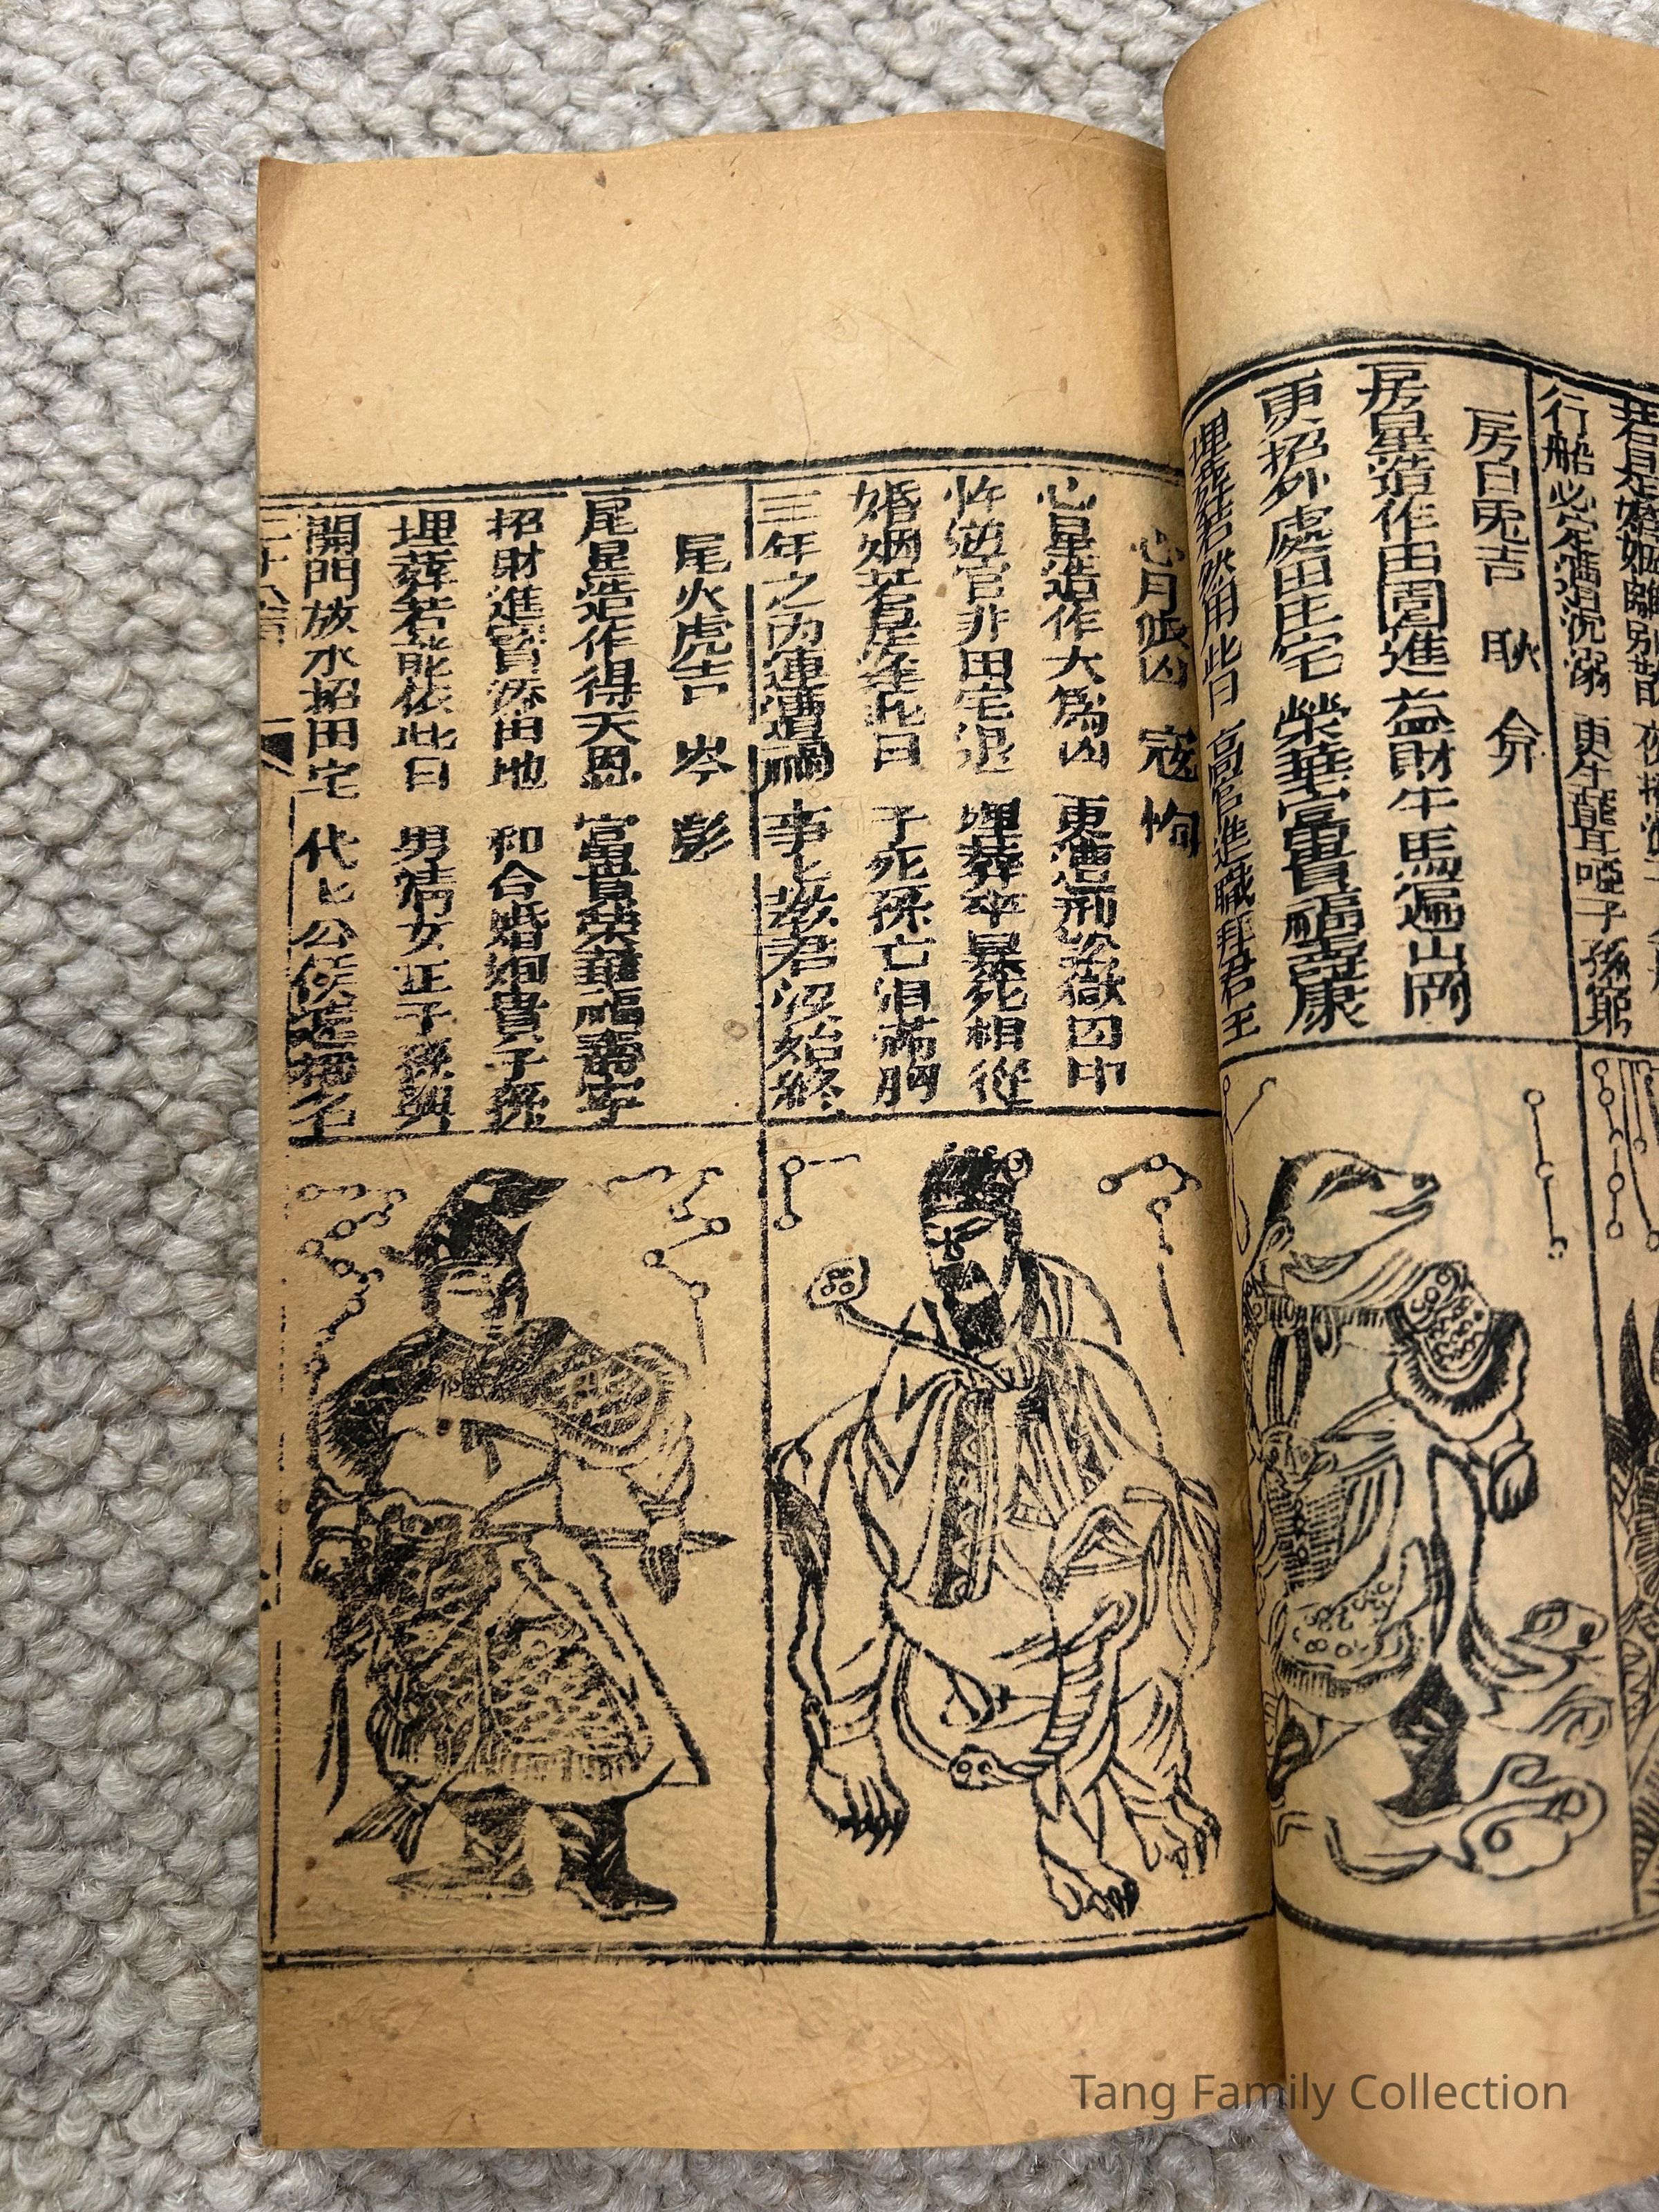 行船必定遭沉溺 更生聾啞子孫窮
房日兎吉 耿 弇
房星造作田園進 益財牛馬遍山岡
更招外處田庄宅 榮華富貴福壽康
埋葬若然用此日 高官進職拜君王
心月狐凶 寇 恂
心星造作大為凶 更遭刑訟獄囚中
忤逆官非田宅退 埋葬卒暴死相從
婚姻若是逢此日 子死孫亡泪滿胸
三年之内連遭禍 事匕教君没始終
尾火虎吉 岑 彭
尾星造作得天恩 富貴榮華福壽寧
招財進寶添田地 和合婚姻貴子孫
埋葬若能依此日 男清女正子孫興
開門放水招田宅 代匕公侯遠播名
Tang Family Collection